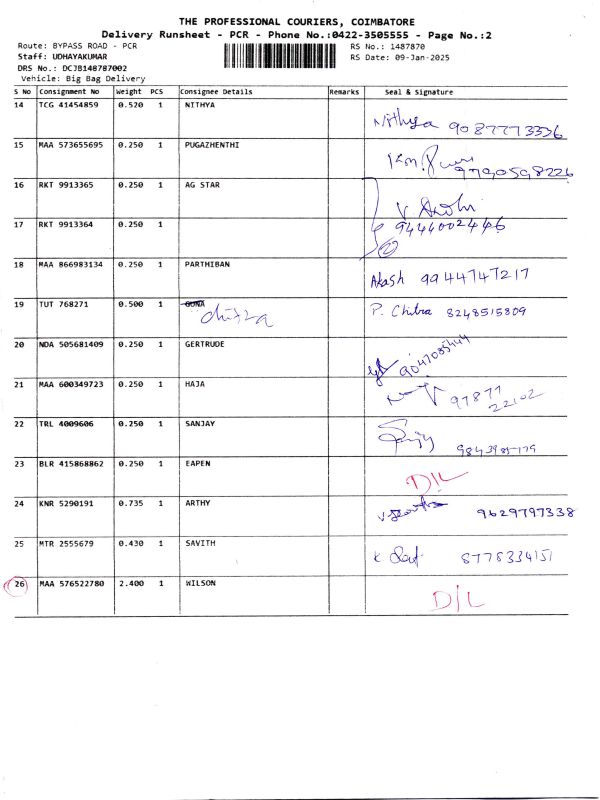 THE PROFESSIONAL COURIERS, COIMBATORE
Delivery Runsheet - PCR - Phone No.:0422-3505555 - Page No.:2
Route: BYPASS ROAD - PCR RS No.: 1487870
Staff: UDHAYAKUMAR RS Date: 09-Jan-2025
DRS No.: DCJB148787002
Vehicle: Big Bag Delivery
S No Consignment No Weight PCS Consignee Details Remarks Seal & Signature
14 TCG 41454859 0.520 1 NITHYA
Nithya 9087773336
15 MAA 573655695 0.250 1 PUGAZHENTHI
9790598226
16 RKT 9913365 0.250 1 AG STAR
17 RKT 9913364 0.250 1 9444002446
2
18 MAA 866983134 0.250 1 PARTHIBAN
Akash 9944747217
19 TUT 768271 0.500 1 GUNA P. Chitra 8248515809
chitra
20 NDA 505681409 0.250 1 GERTRUDE
9047085444
21 MAA 600349723 0.250 1 HAJA
97877
22102
22 TRL 4009606 0.250 1 SANJAY
9843985179
23 BLR 415868862 0.250 1 EAPEN
D/L
24 KNR 5290191 0.735 1 ARTHY
9629797338
25 MTR 2555679 0.430 1 SAVITH
8778334151
26 MAA 576522780 2.400 1 WILSON
D/L